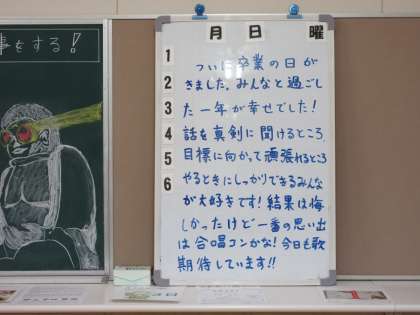 事をする!
月 日 曜
1
2
3
4
5
6
ついに卒業の日が
きました。みんなと過ごし
た一年が幸せでした!
話を真剣に聞けるところ
目標に向かって頑張れるところ
やるときにしっかりできるみんな
が大好きです!結果は悔
しかったけど一番の思い出
は合唱コンかな!今日も歌
期待しています!!